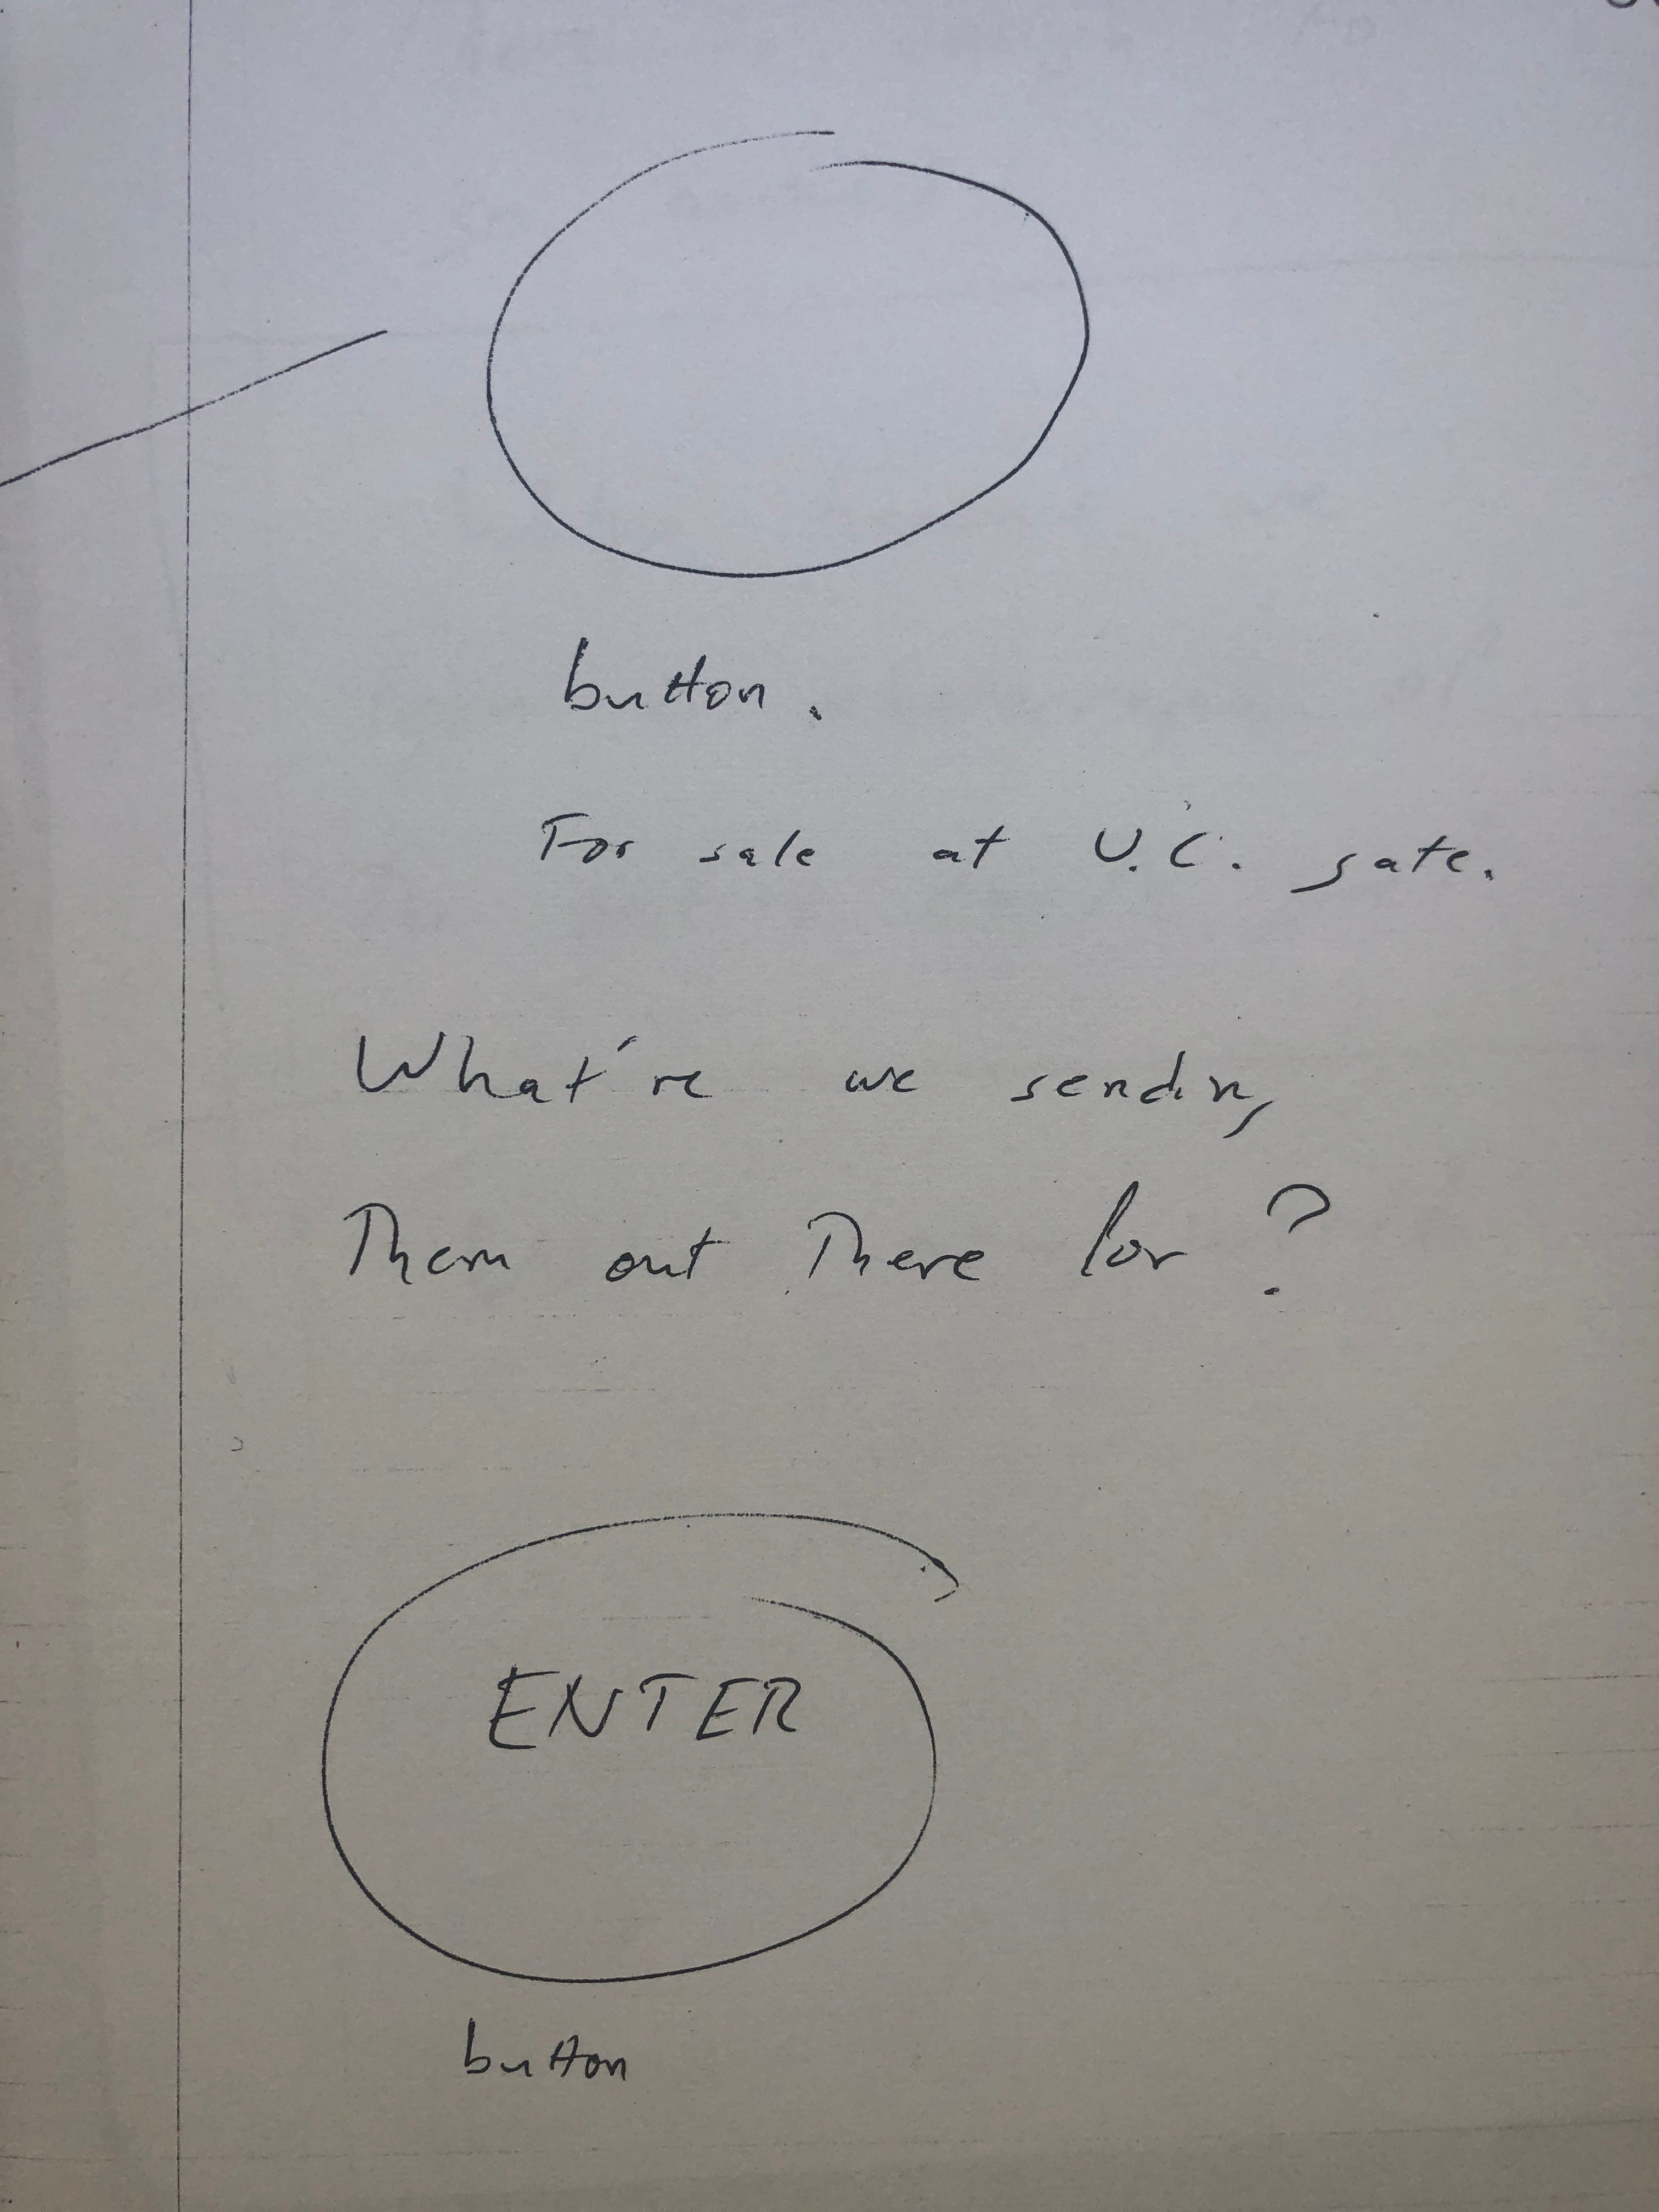 button.
For sale at U.C. gate.
What're we sending
Them out There for?
ENTER
button